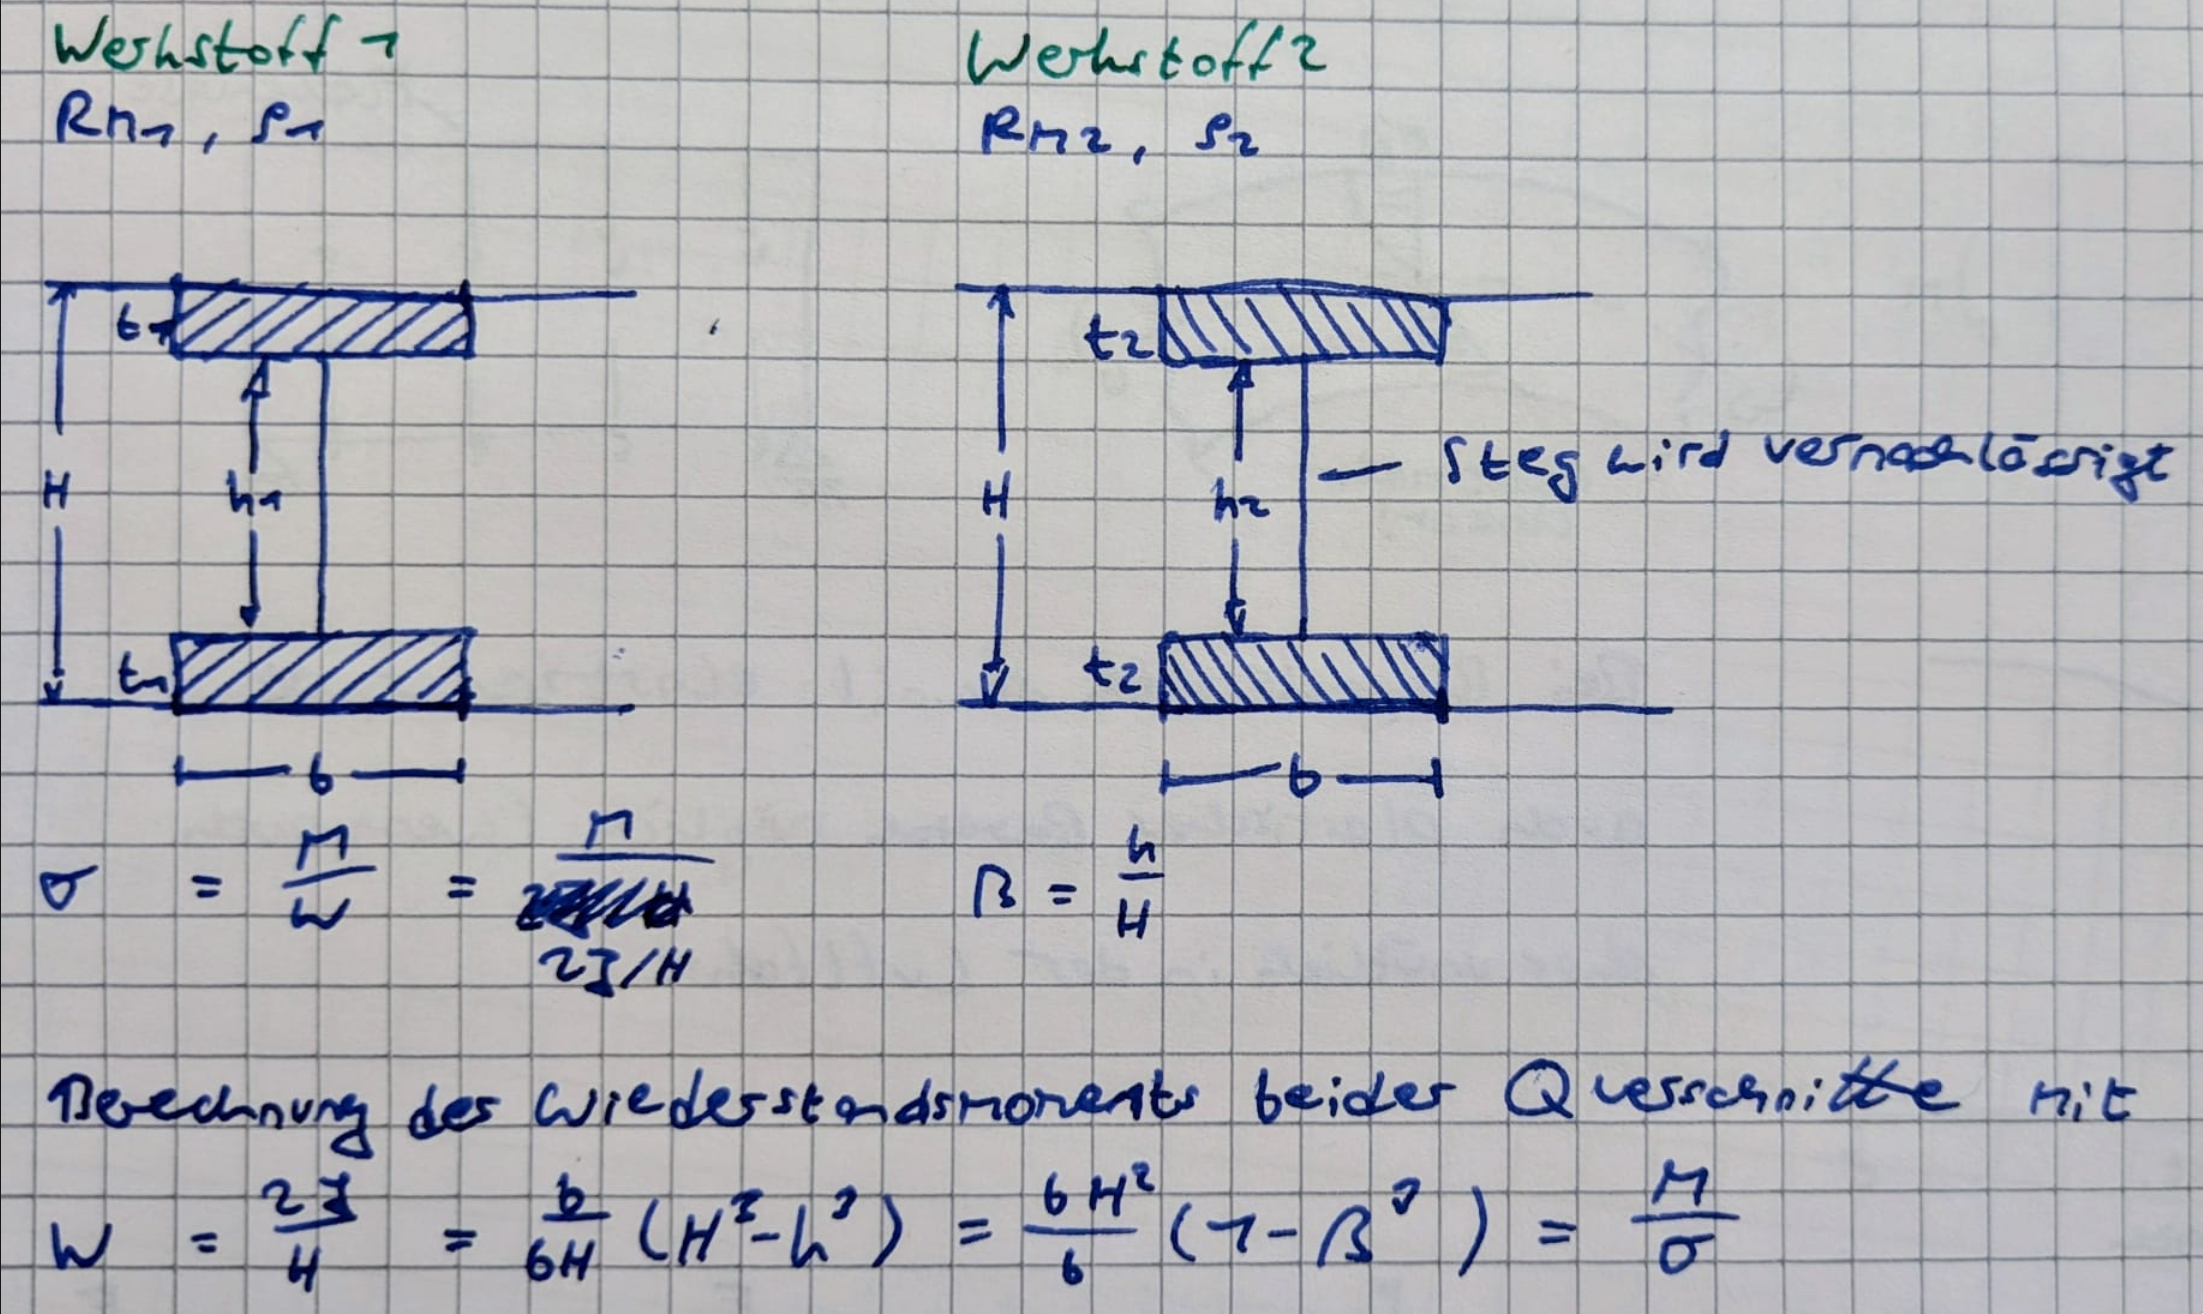 Werkstoff 1
Rm1, ρ1
Werkstoff 2
Rm2, ρ2
t1
H
h1
t1
b
t2
H
h2
Steg wird vernachlässigt
t2
b
σ = M/W = M/(2J/H)
β = h/H
Berechnung des Wiederstandsmoments beider Querschnitte mit
W = 2J/H = b/6H (H³-h³) = bH²/6 (1-β³) = M/σ